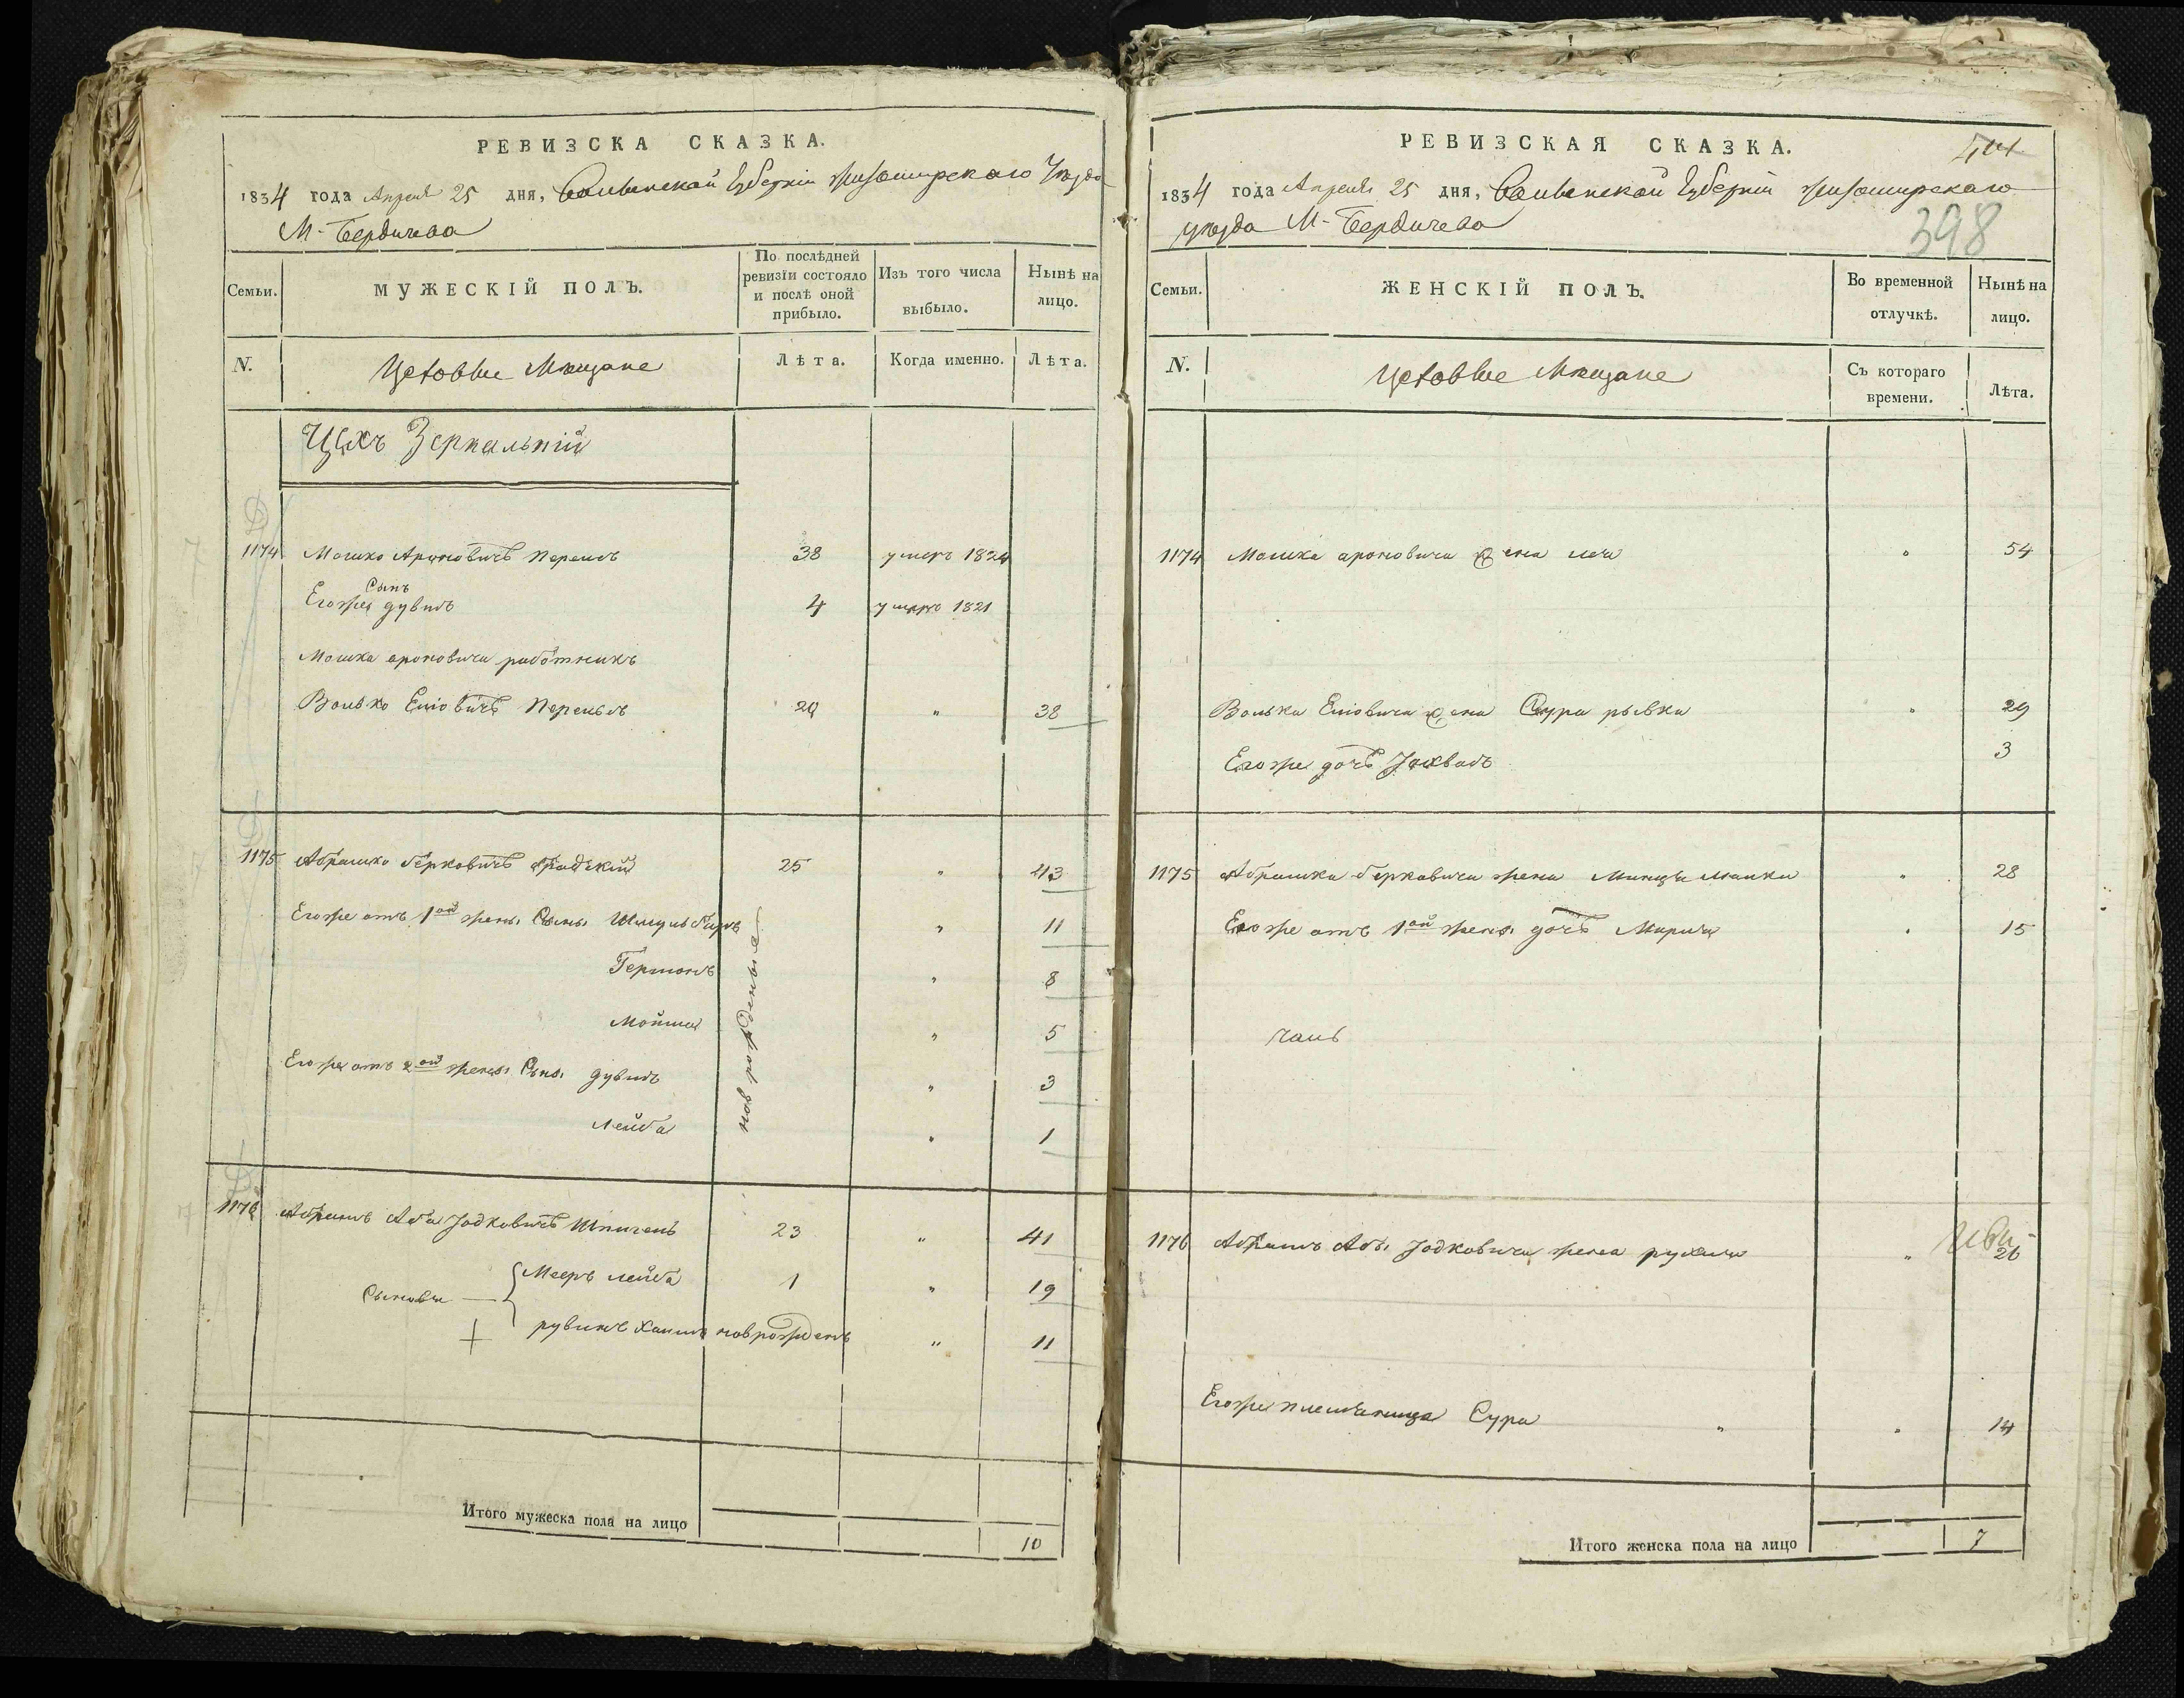 РЕВИЗСКА СКАЗКА.
1834 года Апреля 25 дня, Волынской Губерніи Житомирскаго Уезда
М-Бердичева
Семьи.
МУЖЕСКІЙ ПОЛЪ.
По послѣдней ревизіи состояло и послѣ оной прибыло.
Изъ того числа выбыло.
Нынѣ на лицо.
N.
Цеховые Мещане
Лѣта.
Когда именно.
Лѣта.
Цехъ Зеркальній
1174 Мошко Ароновичъ 38 умеръ 1824
Сынъ
Егоже дувидъ 4 умеръ 1821
Мошка ароновича работникъ
Волько 20 " 38
1175 Абрашко берковичъ 25 " 43
Егоже отъ 1ой жены Сыны " 11
Гершонъ " 8
Мойше " 5
Егоже отъ 2ой жены Сыны дувидъ " 3
Лейба " 1
нов рожденные
1176 Абрамъ Аба Іодковичъ 23 " 41
Сыновья Мееръ лейба 1 " 19
рувинъ Хаимъ новрожденъ " 11
Итого мужеска пола на лицо 10
РЕВИЗСКАЯ СКАЗКА.
1834 года Апреля 25 дня, Волынской Губерніи Житомирскаго
398
уезда М-Бердичева
Семьи.
ЖЕНСКІЙ ПОЛЪ.
Во временной отлучкѣ.
Нынѣ на лицо.
N.
Цеховые Мещане
Съ котораго времени.
Лѣта.
1174 Мошка ароновича жена лея " 54
Волька жена Сура рывка " 29
Егоже дочь 3
1175 Абрашка берковича жена " 28
Егоже отъ 1ой жены дочь " 15
1176 Абрама Абы Іодковича жена рухля " 26
Егоже племяница Сура " " 14
Итого женска пола на лицо 7